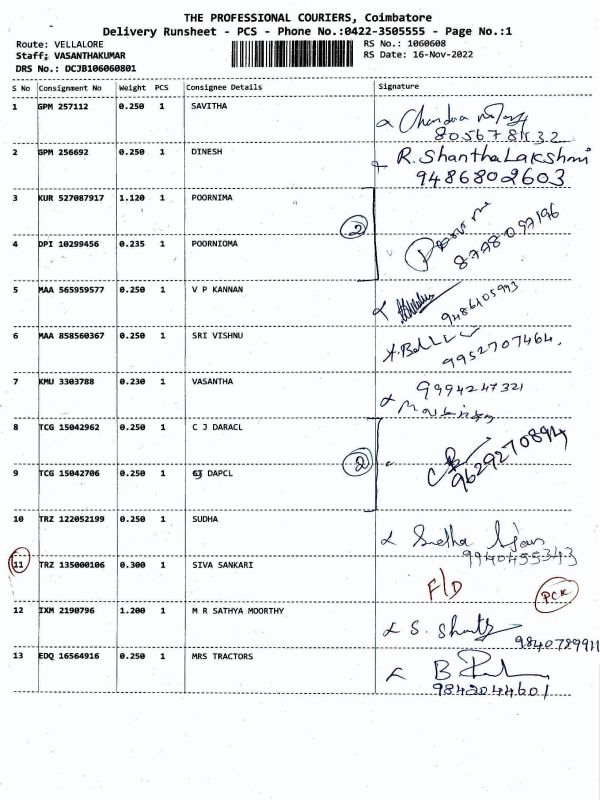 THE PROFESSIONAL COURIERS, Coimbatore
Delivery Runsheet - PCS - Phone No.:0422-3505555 - Page No.:1
Route: VELLALORE
RS No.: 1060608
Staff: VASANTHAKUMAR
RS Date: 16-Nov-2022
DRS No.: DCJB106060801
S No Consignment No Weight PCS Consignee Details Signature
1 GPM 257112 0.250 1 SAVITHA
2 GPM 256692 0.250 1 DINESH R. ShanthaLakshmi
9486802603
3 KUR 527087917 1.120 1 POORNIMA
2
4 DPI 10299456 0.235 1 POORNIOMA 8778097196
5 MAA 565959577 0.250 1 V P KANNAN
9486105993
6 MAA 858560367 0.250 1 SRI VISHNU
9952707464.
7 KMU 3303788 0.230 1 VASANTHA 9994247321
8 TCG 15042962 0.250 1 C J DARACL
2
9629270894
9 TCG 15042706 0.250 1 CJ DAPCL
10 TRZ 122052199 0.250 1 SUDHA Sudha
9940455343
11 TRZ 135000106 0.300 1 SIVA SANKARI F/D PCK
12 IXM 2190796 1.200 1 M R SATHYA MOORTHY S.
9840789911
13 EDQ 16564916 0.250 1 MRS TRACTORS B
9842044601